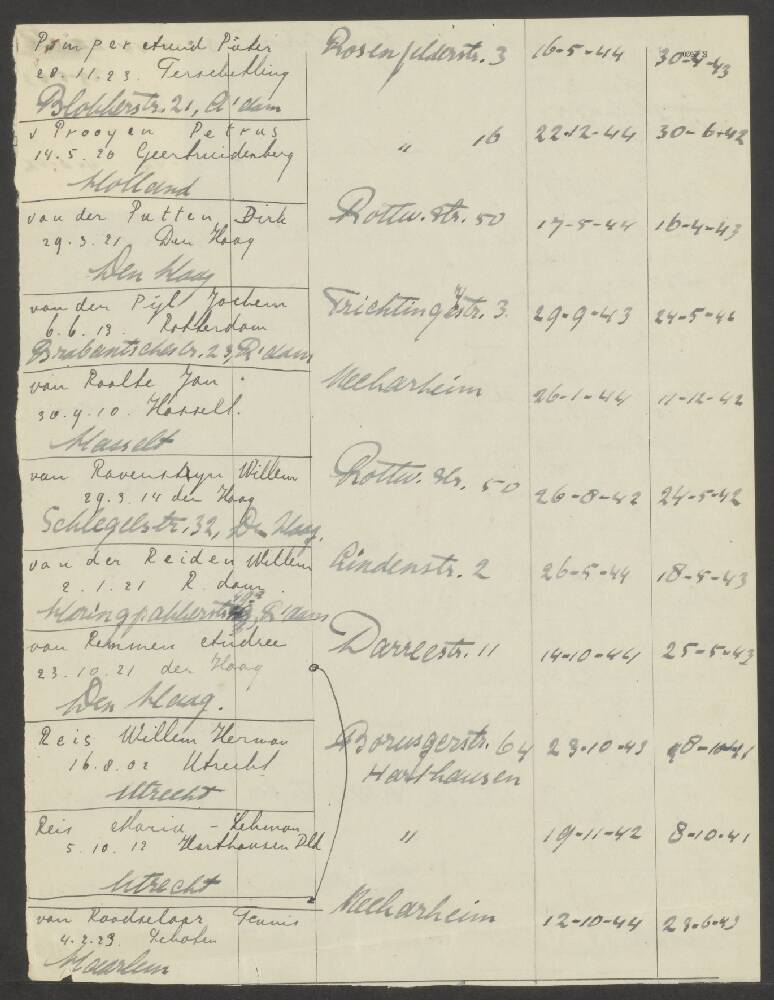 Pieter Rosenfelderstr. 3 16-5-44 30-4-43
28.11.23. Terschelling
Blobberstr. 21, A'dam
v Prooyen Petrus " 16 22-12-44 30-6-42
14.5.20 Geertruidenberg
Holland
van der Putten Dirk Rottw. Str. 50 17-5-44 16-4-43
29.3.21 Den Haag
Den Haag
van der Pijl Jochem Trichtingerstr. 3. 29-9-43 24-5-42
6.6.13. Rotterdam
Brabantschestr. 23, R'dam
van Raalte Jan. Neckarheim 26-1-44 11-12-42
30.4.10. Hasselt.
Hasselt
van Ravensteyn Willem Rottw. Str. 50 26-8-42 24-5-42
29.3.14 den Haag
Schlegelstr, 32, Den Haag.
van der Reiden Willem Lindenstr. 2 26-5-44 18-5-43
2.1.21 R. dam.
R'dam
van Remmen Andree Darreestr. 11 14-10-44 25-5-43
23.10.21 den Haag
Den Haag.
Reis Willem Herman 64 23-10-43
16.8.02 Utrecht Harthausen
Utrecht
Reis Maria - Lehman " 19-11-42 8-10-41
5.10.12 Harthausen Dld
Utrecht
van Roodselaar Teunis Neckarheim 12-10-44 23-6-43
4.2.23.
Haarlem